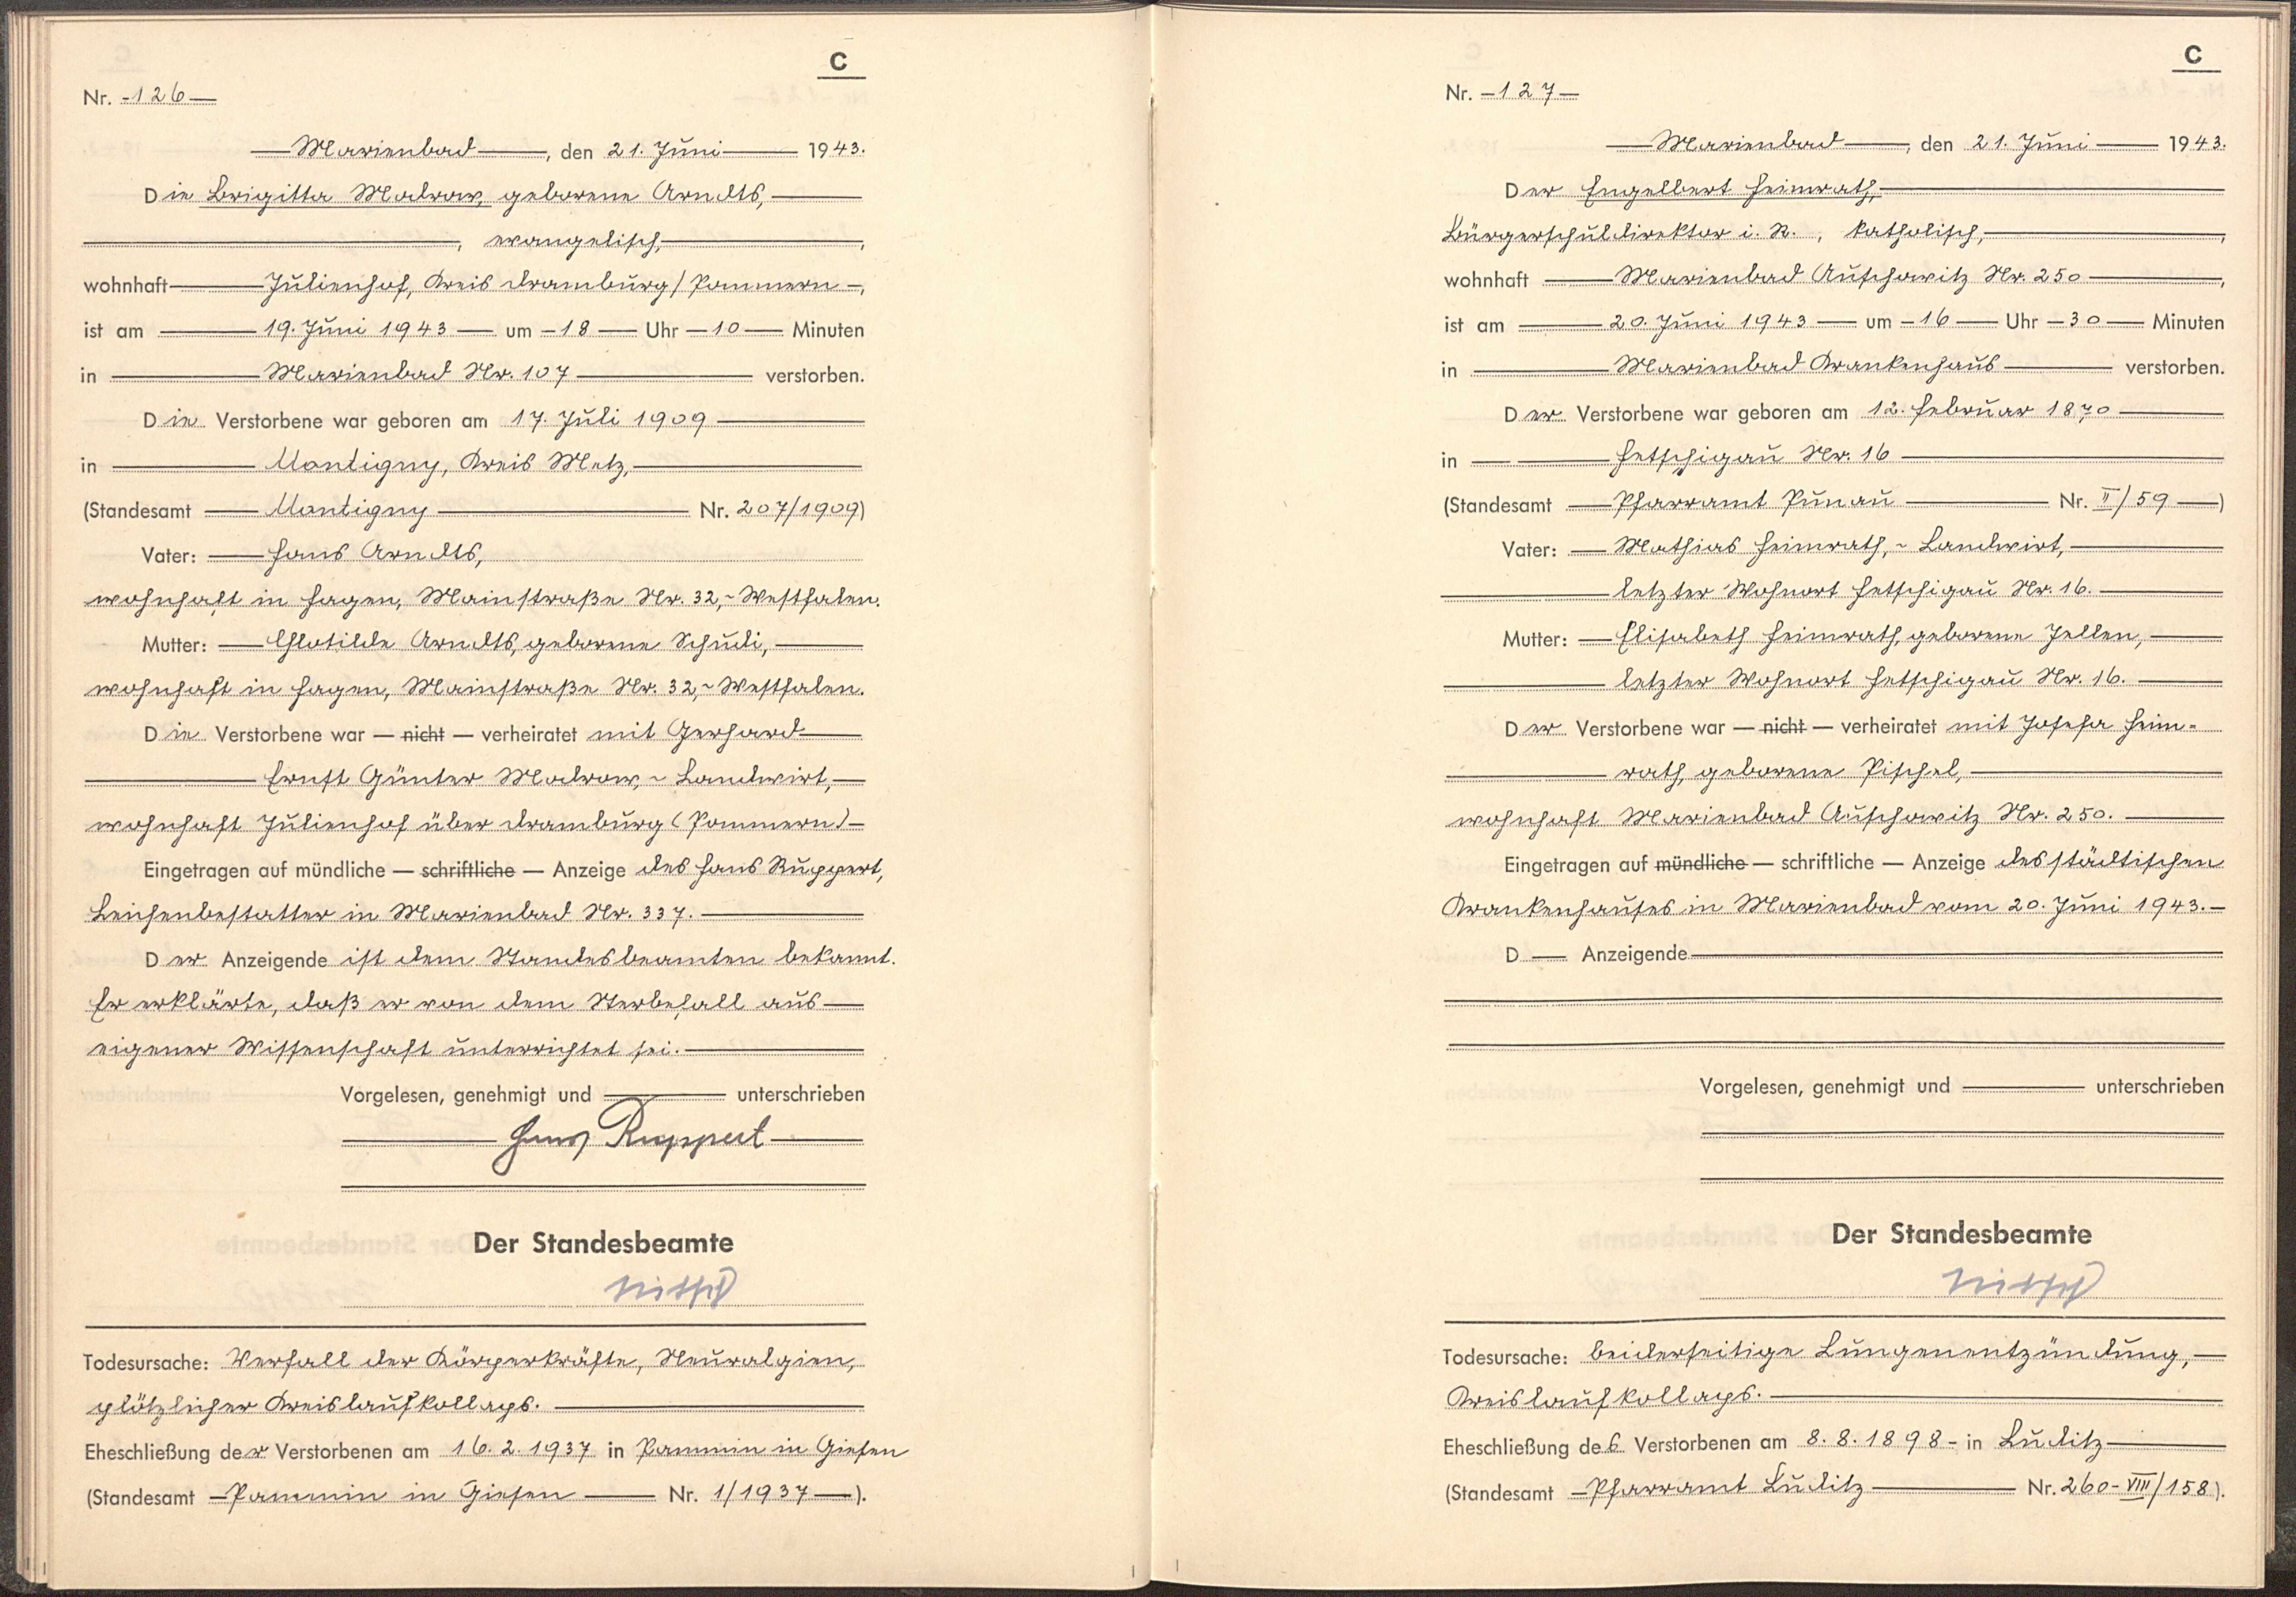 C
Nr. -126-
Marienbad, den 21. Juni 1943.
Die Brigitta Madrow, geborene Arndts,
, evangelisch,
wohnhaft Julienhof, Kreis Dramburg/Pommern -,
ist am 19. Juni 1943 um -18 Uhr -10 Minuten
in Marienbad Nr. 107 verstorben.
Die Verstorbene war geboren am 17. Juli 1909
in Montigny, Kreis Metz,
(Standesamt Montigny Nr. 207/1909)
Vater: Hans Arndts,
wohnhaft in Hagen, Mainstraße Nr. 32,- Westfalen.
Mutter: Chlotilde Arndts, geborene Schudi,
wohnhaft in Hagen, Mainstraße Nr. 32,- Westfalen.
Die Verstorbene war — nicht — verheiratet mit Gerhard
Ernst Günter Madrow, - Landwirt,
wohnhaft Julienhof über Dramburg (Pommern)
Eingetragen auf mündliche — schriftliche — Anzeige des Hans Ruppert,
Leichenbestatter in Marienbad Nr. 337.
Der Anzeigende ist dem Standesbeamten bekannt.
Er erklärte, daß er von dem Sterbefall aus
eigener Wissenschaft unterrichtet sei.
Vorgelesen, genehmigt und unterschrieben
Hans Ruppert
Der Standesbeamte
Todesursache: Verfall der Körperkräfte, Neuralgien,
plötzlicher Kreislaufkollaps.
Eheschließung der Verstorbenen am 16.2.1937 in Pammin in Giesen
(Standesamt Pammin in Giesen Nr. 1/1937).
C
Nr. -127-
Marienbad, den 21. Juni 1943.
Der Engelbert Heimrath,
Bürgerschuldirektor i. R., katholisch,
wohnhaft Marienbad Auschowitz Nr. 250,
ist am 20. Juni 1943 um -16 Uhr -30 Minuten
in Marienbad Krankenhaus verstorben.
Der Verstorbene war geboren am 12. Februar 1870
in Hetschigau Nr. 16
(Standesamt Pfarramt Punau Nr. II/59)
Vater: Mathias Heimrath, - Landwirt,
letzter Wohnort Hetschigau Nr. 16.
Mutter: Elisabeth Heimrath, geborene Zellen,
letzter Wohnort Hetschigau Nr. 16.
Der Verstorbene war — nicht — verheiratet mit Josefa Heim-
rath, geborene Pischel,
wohnhaft Marienbad Auschowitz Nr. 250.
Eingetragen auf mündliche — schriftliche — Anzeige des städtischen
Krankenhauses in Marienbad vom 20. Juni 1943.
D Anzeigende
Vorgelesen, genehmigt und unterschrieben
Der Standesbeamte
Todesursache: beiderseitige Lungenentzündung,
Kreislaufkollaps.
Eheschließung des Verstorbenen am 8.8.1898 - in Luditz
(Standesamt Pfarramt Luditz Nr. 260-VIII/158).